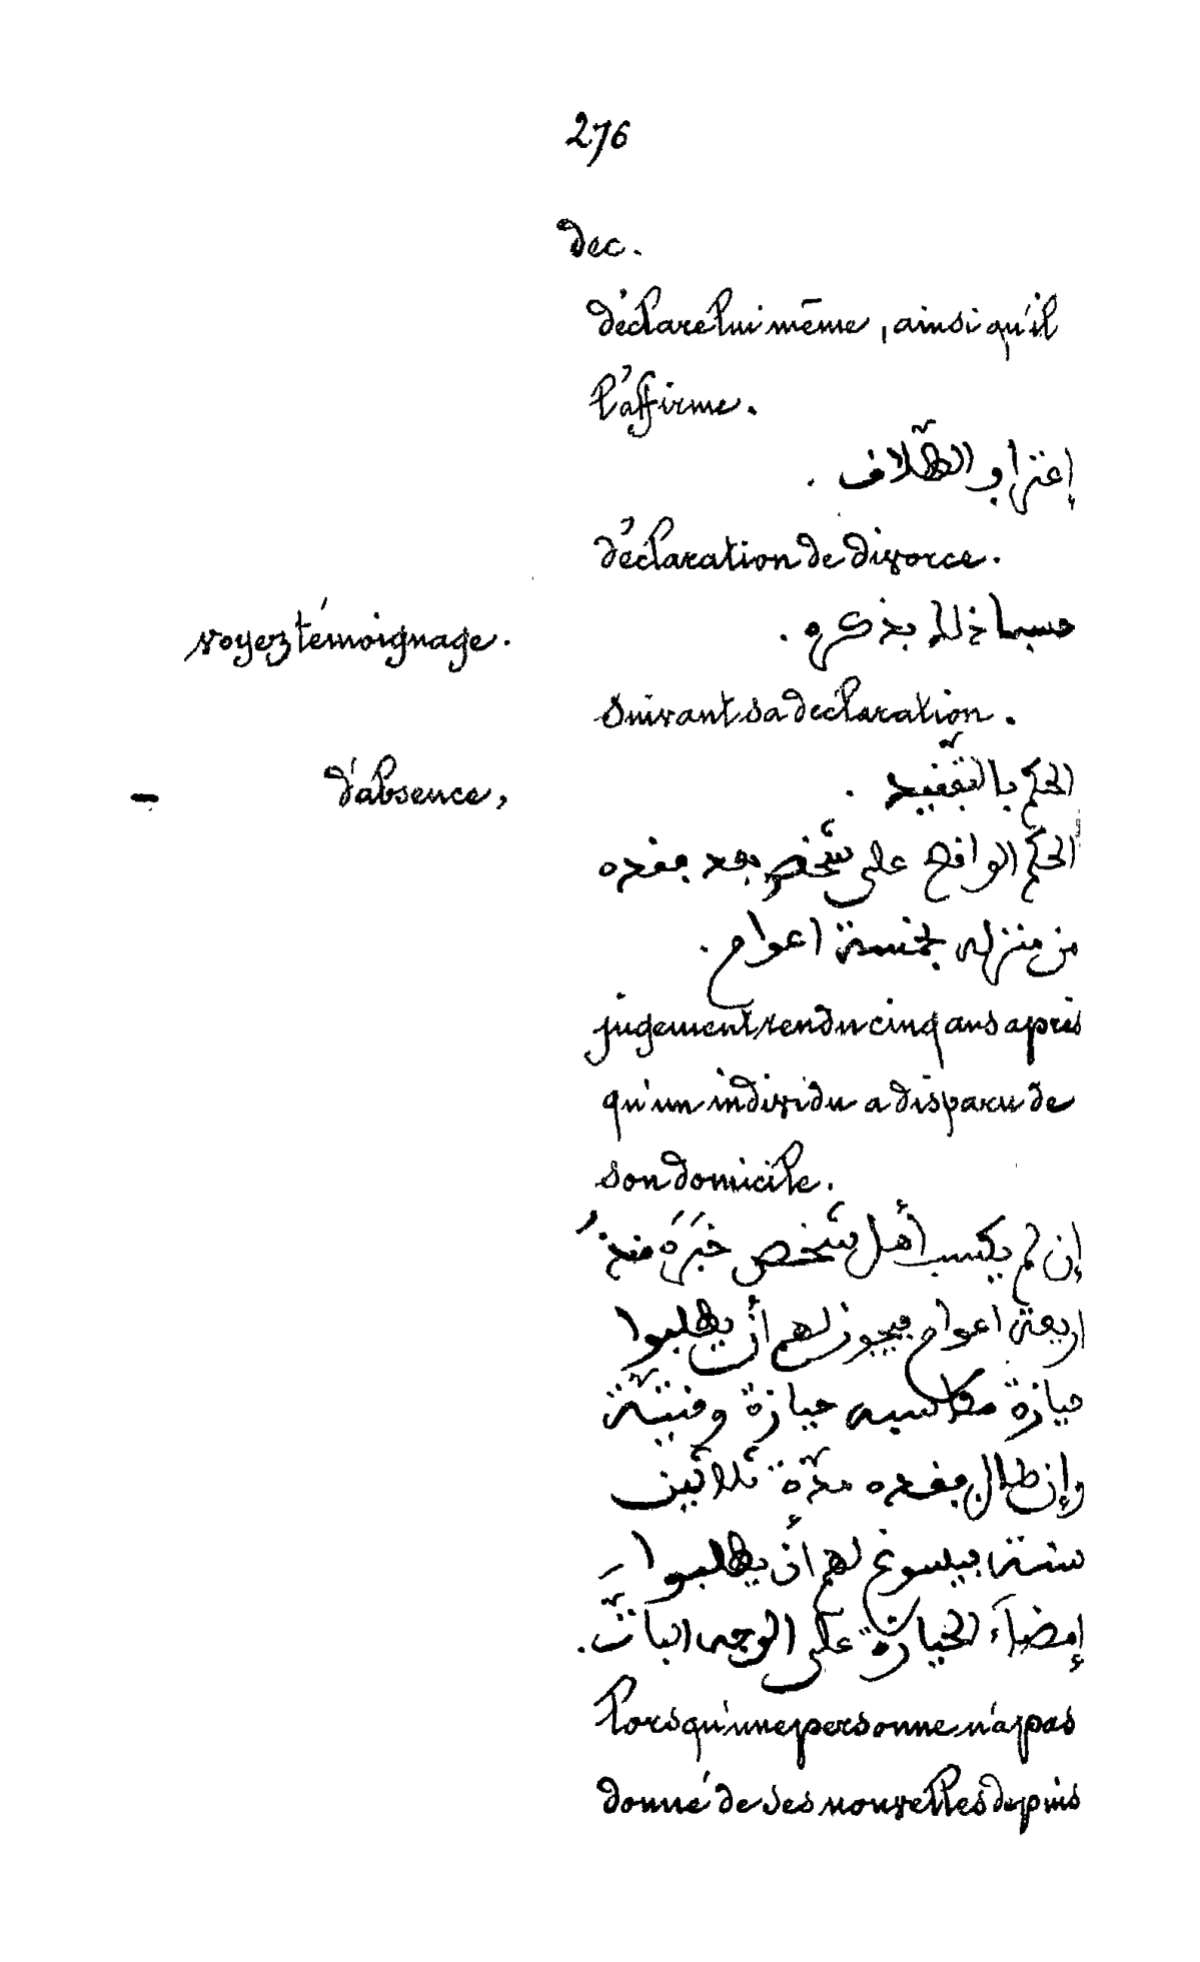 276
dec.
déclare lui même, ainsi qu'il
l'affirme.
إعترا و الطّلاف .
déclaration de divorce.
voyez témoignage. حسبما خللا بذكره .
suivant sa déclaration.
— d'absence, الحكم بالتّفقيد .
الحكم الوافع على شخص بعد فقده
من منزله بخمسة اعوام .
jugement rendu cinq ans après
qu'un individu a disparu de
son domicile.
إن لم يكسب أهل شخص خبره منذ
اربعة اعوام فيجوز لهم أن يطلبوا
حيازة مكاسبه حيازة وفتيّة
وإن طال فقده مدّة ثلاثين
سنة فيسوغ لهم أن يطلبوا
إمضاء الحيازة على الوجه الباتّ.
lorsqu'une personne n'a pas
donné de ses nouvelles depuis